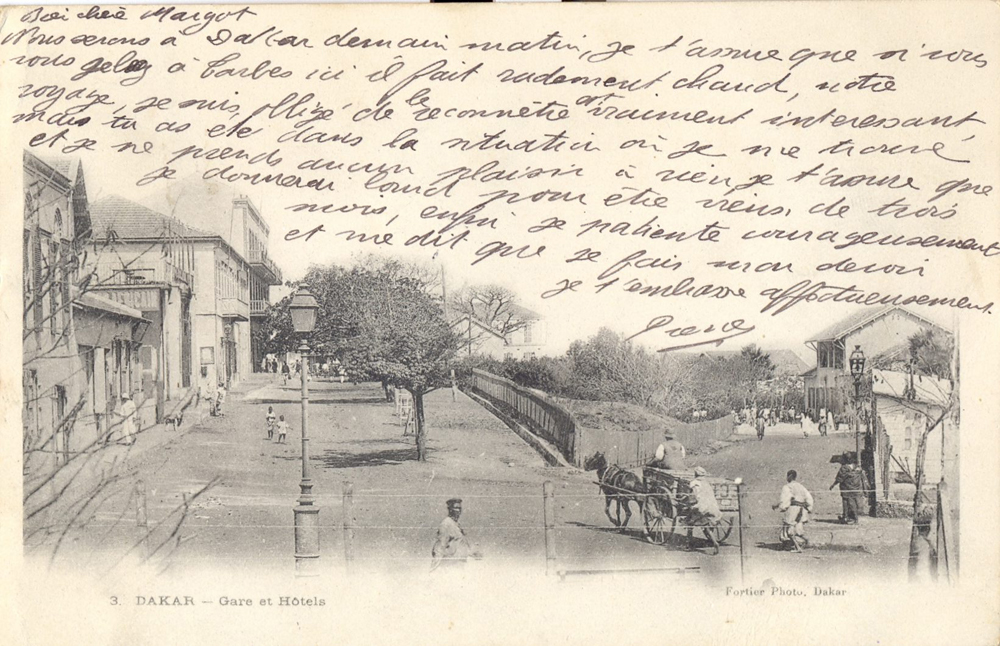 chère Margot
Nous serons à Dakar demain matin, je t'assure que si vous
vous gelez à Tarbes ici il fait rudement chaud, notre
voyage, je suis obligé de le reconnétre est vraiment interessant,
mais tu as été dans la situation où je me trouve
et je ne prends aucun plaisir à rien je t'assure que
je donnerai lourd pour être vieux de trois
mois, enfin je patiente courageusement
et me dit que je fais mon devoir
je t'embrasse affectueusement.
Pierre
3. DAKAR — Gare et Hôtels
Fortier Photo, Dakar